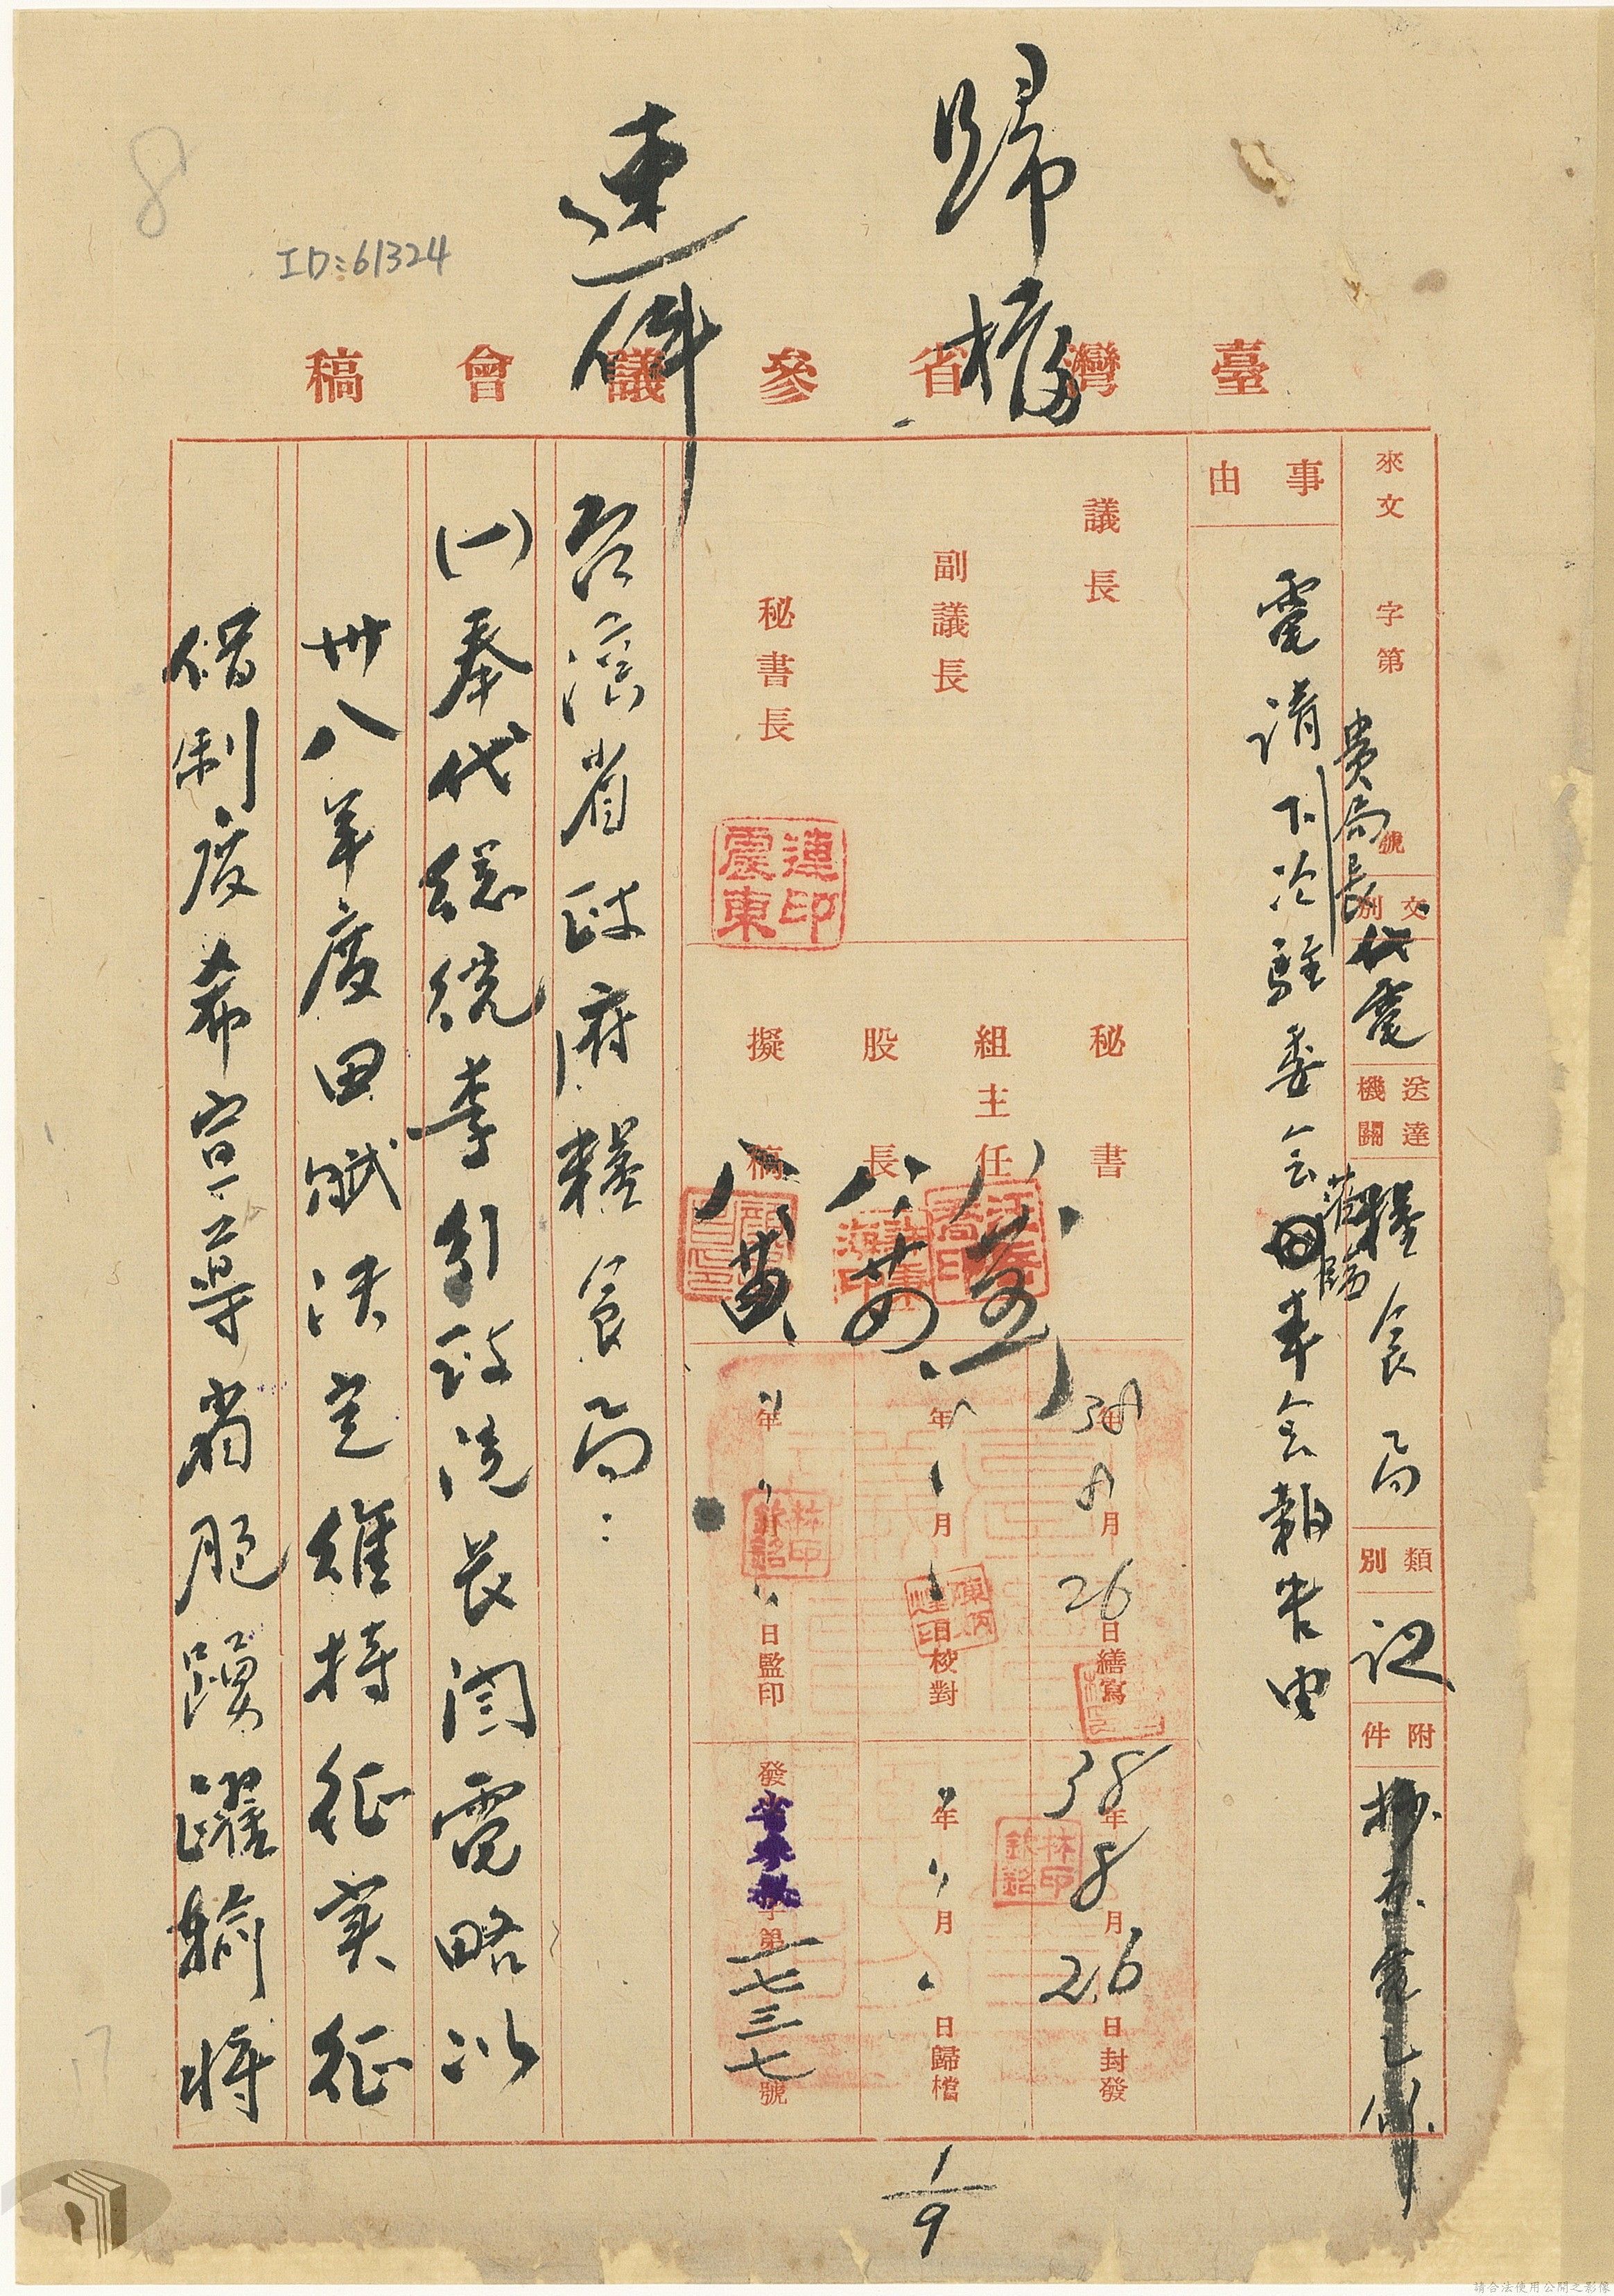 歸檔
速件
8
ID:61324
臺灣省參議會稿
來文 字第 號
文別 代電
送達機關 糧食局
類別
附件
事由
電請貴局長蒞臨駐委會本會報告由
議長
副議長
秘書長
連震東印
秘書
組主任
股長
擬稿
38年8月26日繕寫
年月日校對
年月日監印
38年8月26日封發
年月日歸檔
發省參議字第一七三七號
林欽銘印
林欽銘印
台灣省政府糧食局：
(一)奉代總統李行政院長閻電略以
卅八年度田賦決定維持征實征
借制度希宣導省胞踴躍輸將
1/9
17
請合法使用公開之影像